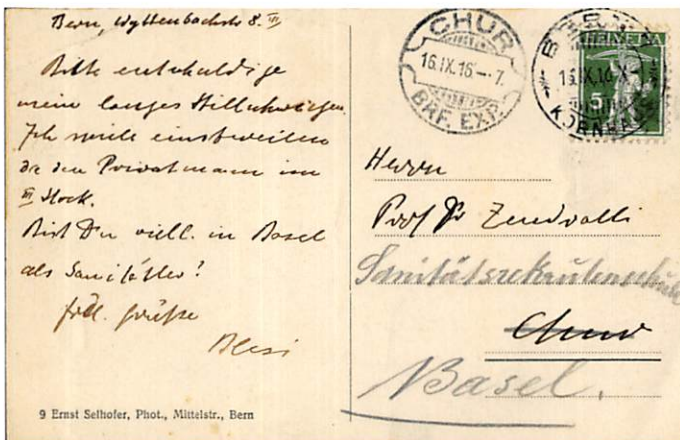 Bern, Wyttenbachstr 8. III
Bitte entschuldige
mein langes Stillschweigen.
Ich spiele einstweilen
da den Privatmann im
III Stock.
Bist Du viell. in Basel
als Sanitätler?
frdl. Grüsse
9 Ernst Selhofer, Phot., Mittelstr., Bern
CHUR
16.IX.16.–7.
BRF. EXP.
HELVETIA
5
Herrn
Prof Dr Zendralli
Sanitätsrekrutenschule
Chur
Basel.